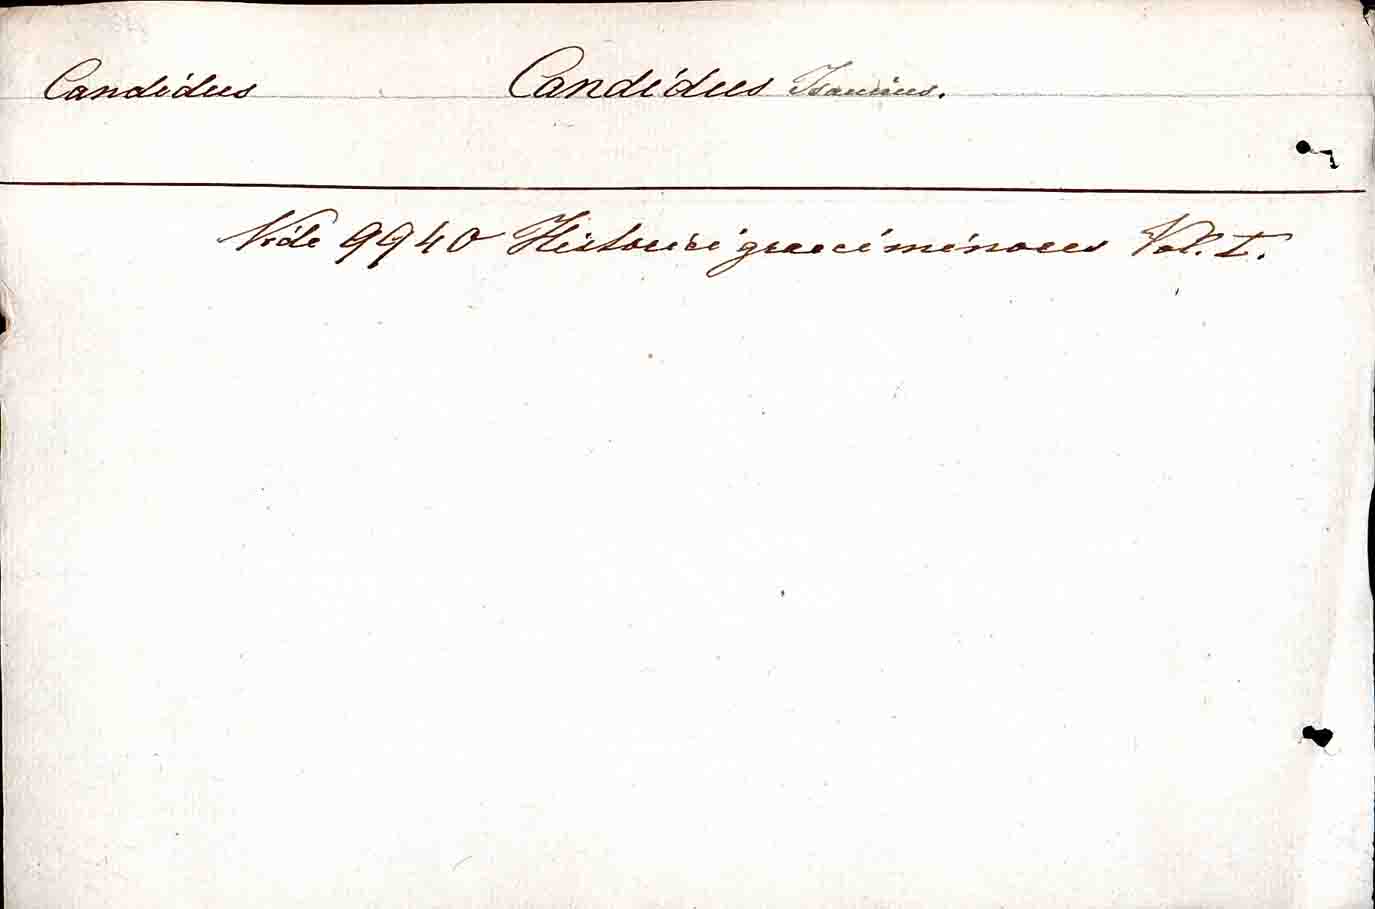 Candidus Candidus Isaurius.
Vide 9940 Historici graeci minores Vol. I.